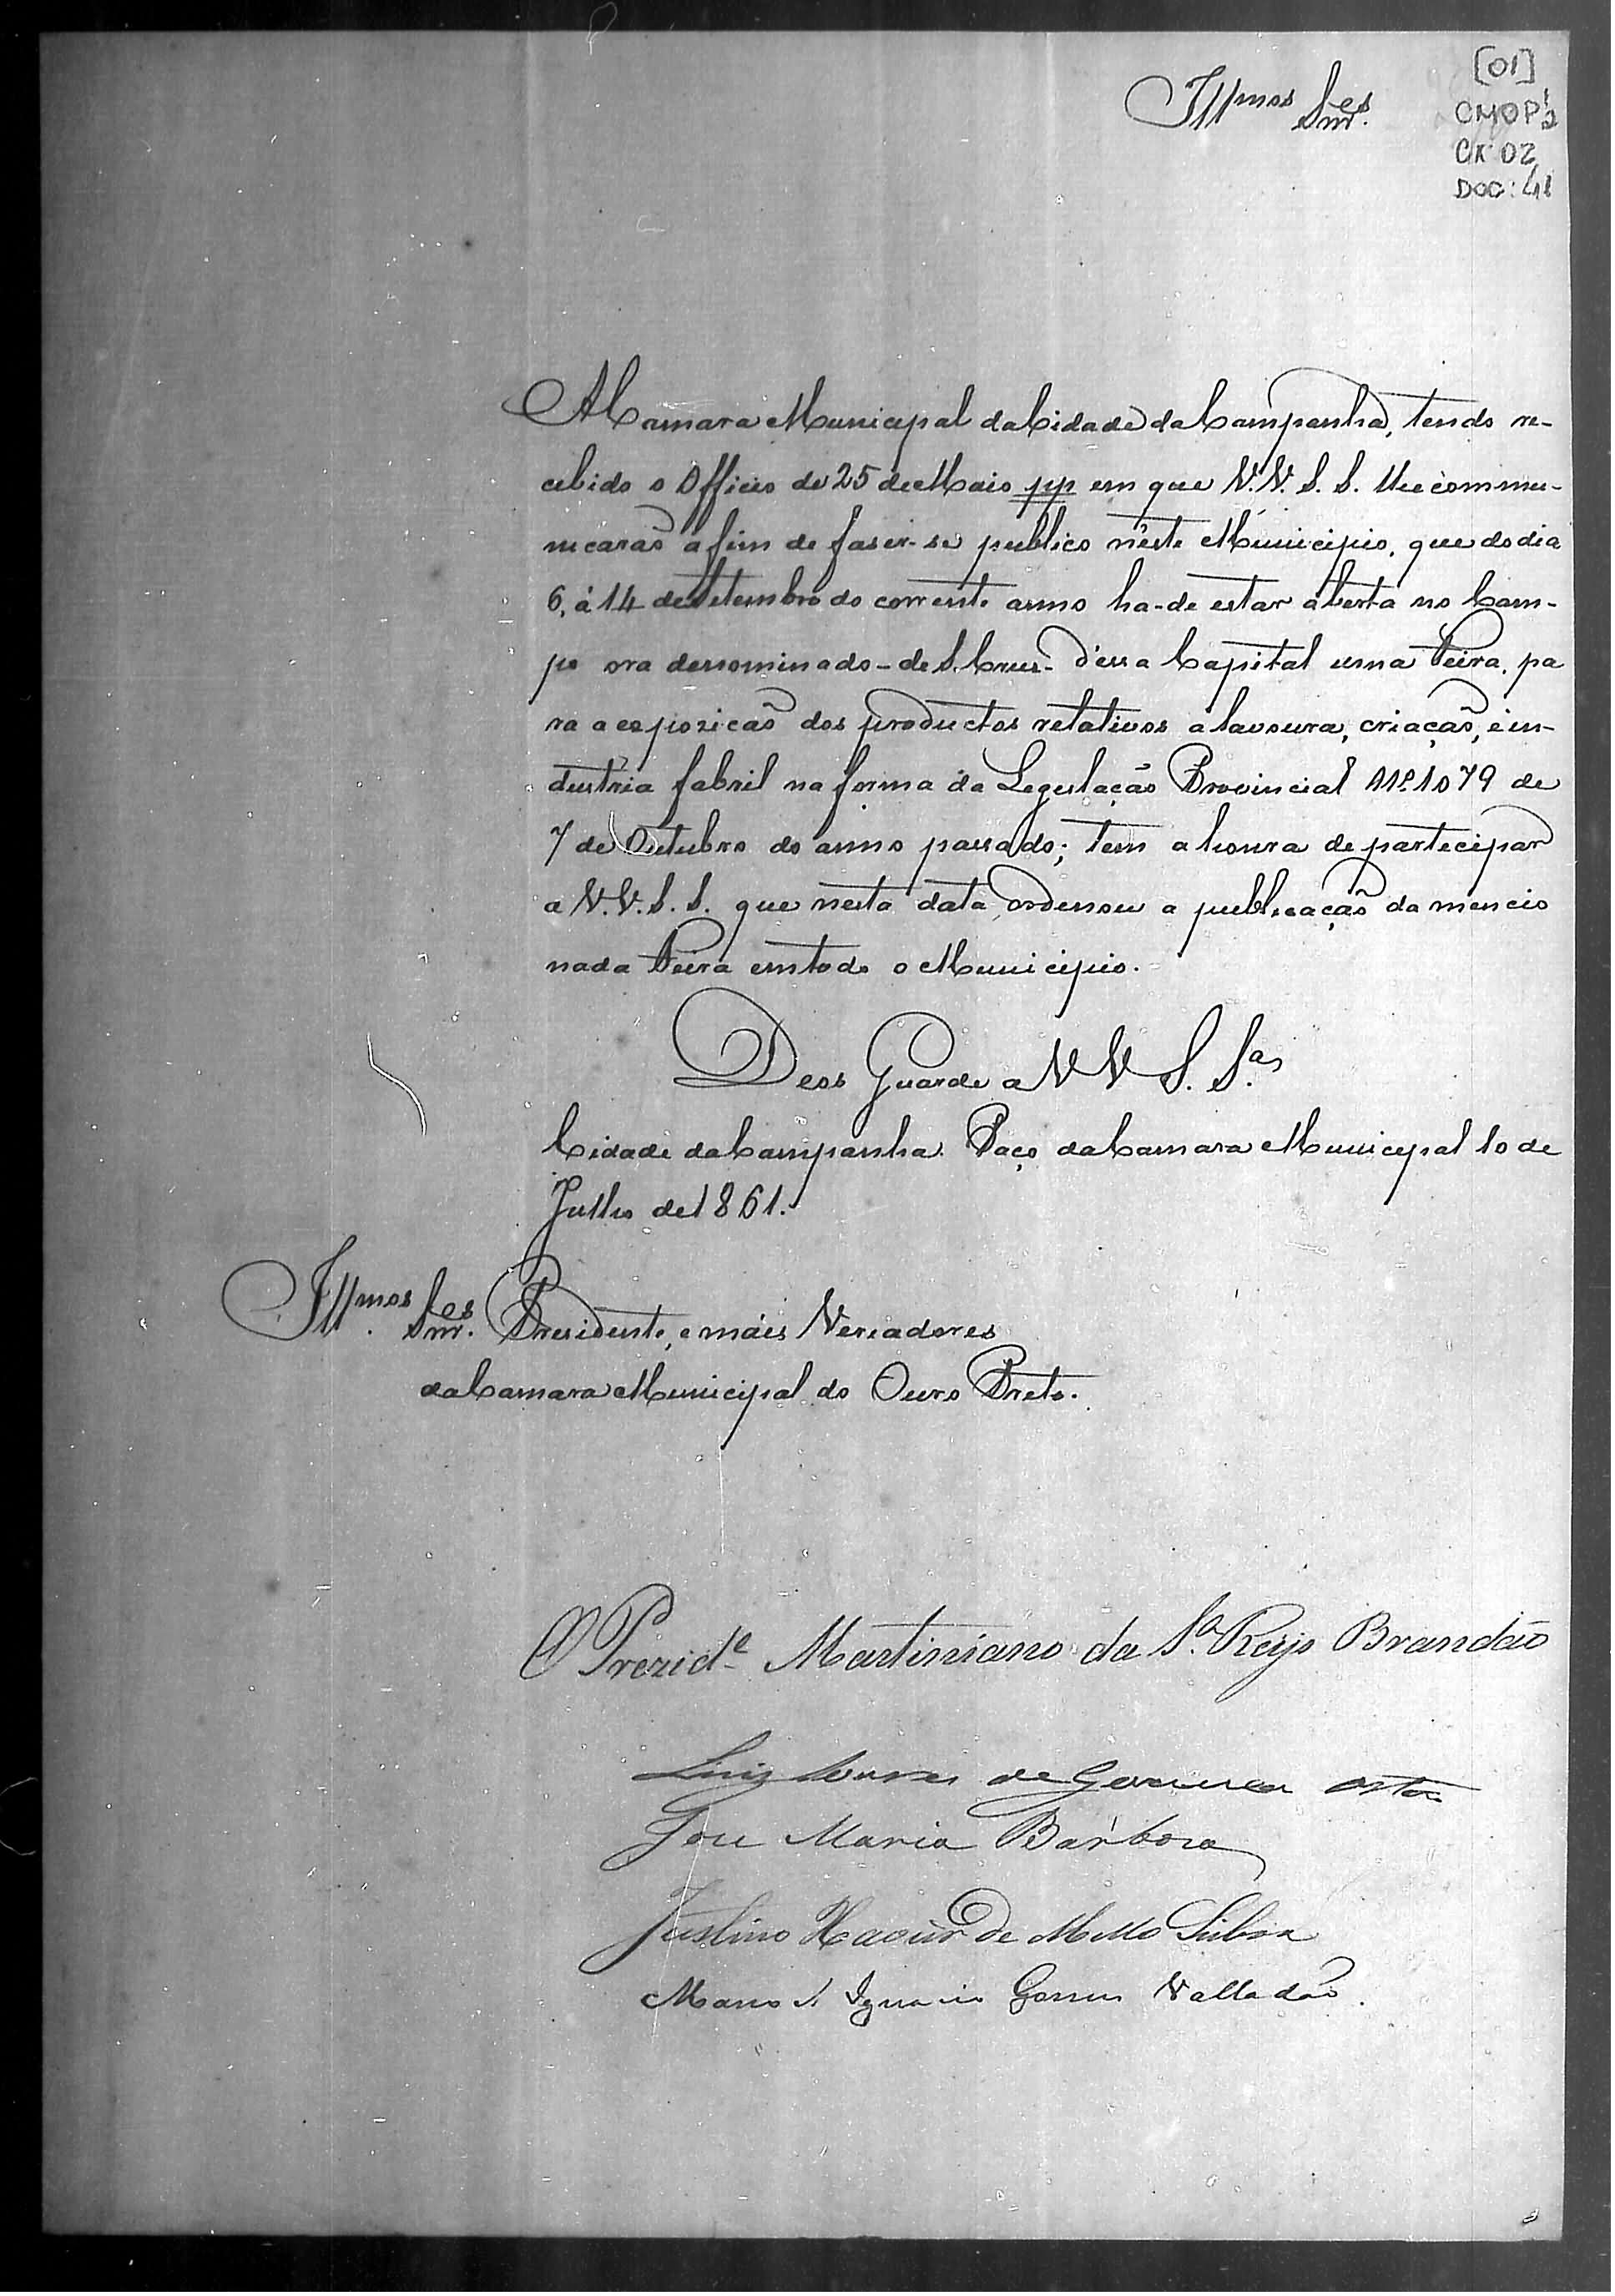 [01]
CMOP 1/2
CX 02
DOC: 41
Illmos Snres.
A Camara Municipal da Cidade da Campanha, tendo re-
cebido o Officio de 25 de Maio pp em que V.V. S. S. lhe commu-
nicarão a fim de faser-se publico n'éste Municipio, que do dia
6, á 14 de Setembro do corrente anno ha-de estar aberta no Cam-
po ora denominado - de S. Crus - d'essa Capital uma Feira, pa
ra a expozicão dos productos relativos a lavoura, criação, e in-
dustria fabril na forma da Legislação Provincial Nº 1079 de
7 de Outubro do anno passado; tem a honra de participar
a V.V. S. S. que nesta data, ordenou a publicação da mencio
nada Feira em todo o Municipio.
Deos Guarde a V V S. S.as
Cidade da Campanha Paço da Camara Municipal 10 de
Julho de 1861.
Illmos Snres. Presidente, e mais Vereadores
da Camara Municipal do Ouro Preto.
O Prezide Martiniano da Sa. Reys Brandão
Luiz de
Jose Maria Barboza
Justino Xavier de Mello
Ignacio Gomes Valladão.